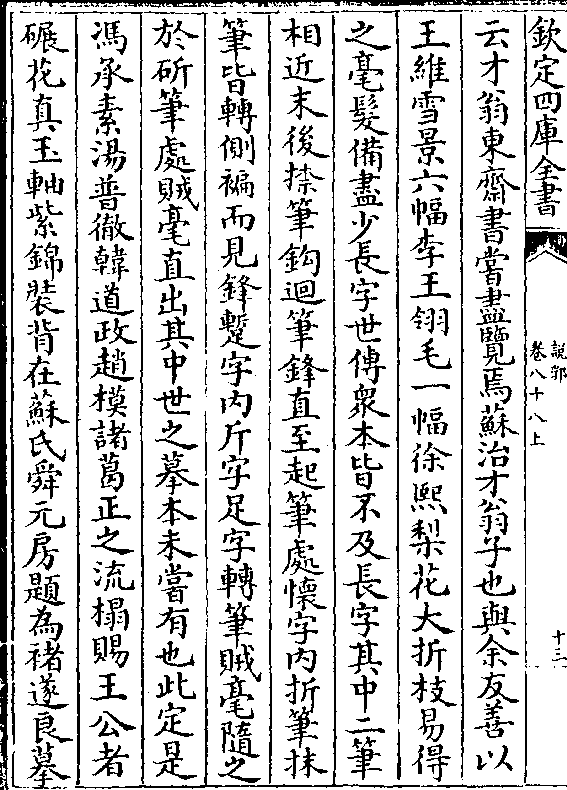 欽定四庫全書
說郛
卷八十八上
十三
云才翁東齋書嘗盡覽焉蘇治才翁子也與余友善以
王維雪景六幅李王翎毛一幅徐熙梨花大折枝易得
之毫髮備盡少長字世傳衆本皆不及長字其中二筆
相近末後捺筆鈎迴筆鋒直至起筆處懷字内折筆抹
筆皆轉側褊而見鋒蹔字内斤字足字轉筆賊毫隨之
於斫筆處賊毫直出其中世之摹本未嘗有也此定是
馮承素湯普徹韓道政趙模諸葛正之流搨賜王公者
碾花真玉軸紫錦裝背在蘇氏舜元房題為褚遂良摹